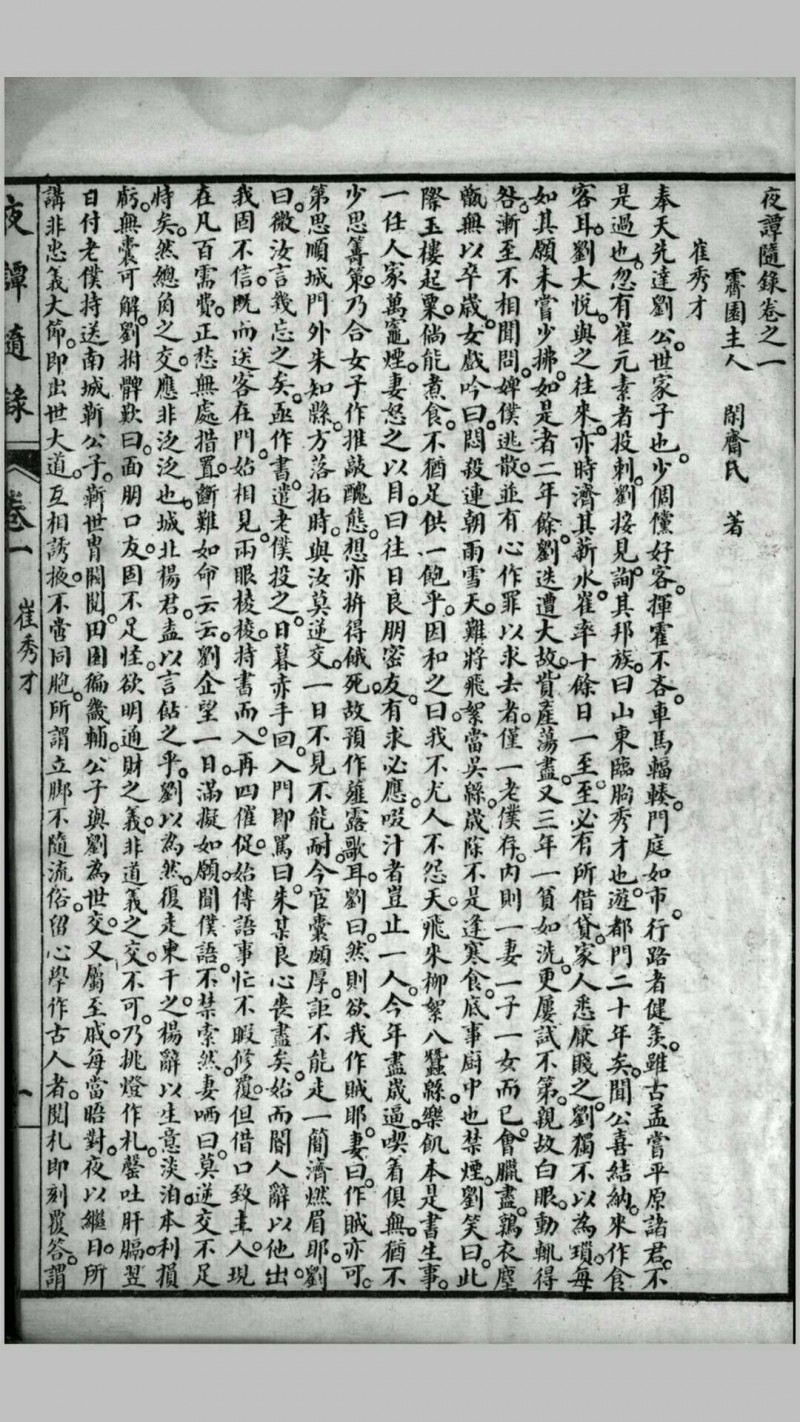 夜譚隨錄卷之一
霽園主人 閑齋氏 著
崔秀才
奉天先達劉公。世家子也。少倜儻好客。揮霍不吝。車馬輻輳。門庭如市。行路者健羨。雖古孟嘗平原諸君。不
是過也。忽有崔元素者投刺。劉接見。詢其邦族。曰山東臨朐秀才也。遊都門二十年矣。聞公喜結納。來作食
客耳。劉大悅。與之往來。亦時濟其薪水。崔率十餘日一至。至必有所借貸。家人悉厭賤之。劉獨不以為瑣。每
如其願。未嘗少拂。如是者二年餘。劉迭遭大故。貲產蕩盡。又三年一貧如洗。更屢試不第。親故白眼。動輒得
咎。漸至不相聞問。婢僕逃散。並有心作罪以求去者。僅一老僕存。內則一妻一子一女而已。會臘盡。鶉衣塵
甑。無以卒歲。女戲吟曰。悶殺連朝雨雪天。難將飛絮當吳綿。歲除不是逢寒食。底事廚中也禁煙。劉笑曰。此
際玉樓起粟。倘能煮食。不猶足供一飽乎。因和之曰。我不尤人不怨天。飛來柳絮八蠶綿。樂飢本是書生事。
一任人家萬竈煙。妻怒之以目。曰往日良朋密友。有求必應。啜汁者豈止一人。今年盡歲逼。喫着俱無。猶不
少思籌策。乃合女子作推敲醜態。想亦拚得餓死。故預作薤露歌耳。劉曰。然則欲我作賊耶。妻曰。作賊亦可。
第思順城門外朱知縣。方落拓時。與汝莫逆交。一日不見不能耐。今宦囊頗厚。詎不能走一簡濟燃眉耶。劉
曰。微汝言幾忘之矣。亟作書。遣老僕投之。日暮赤手回。入門即罵曰。朱某良心喪盡矣。始而閽人辭以他出。
我固不信。既而送客在門。始相見。兩眼棱棱。持書而入。再四催促。始傳語事忙不暇修覆。但借口致主人。現
在凡百需費。正愁無處措置。斷難如命云云。劉企望一日。滿擬如願。聞僕語。不禁索然。妻哂曰。莫逆交不足
恃矣。然總角之交。應非泛泛也。城北楊君。盍以言餂之乎。劉以為然。復走柬干之。楊辭以生意淡泊。本利損
虧。無囊可解。劉拊髀歎曰。面朋口友。固不足怪。欲明通財之義。非道義之交不可。乃挑燈作札。罄吐肝膈。翌
日付老僕持送南城靳公子。靳世胄閥閱。田園徧畿輔。公子與劉為世交。又屬至戚。每當晤對。夜以繼日。所
講非忠義大節。即出世大道。互相誘掖。不啻同胞。所謂立脚不隨流俗。留心學作古人者。閱札即刻覆答。謂
夜譚隨錄 卷一 崔秀才 一